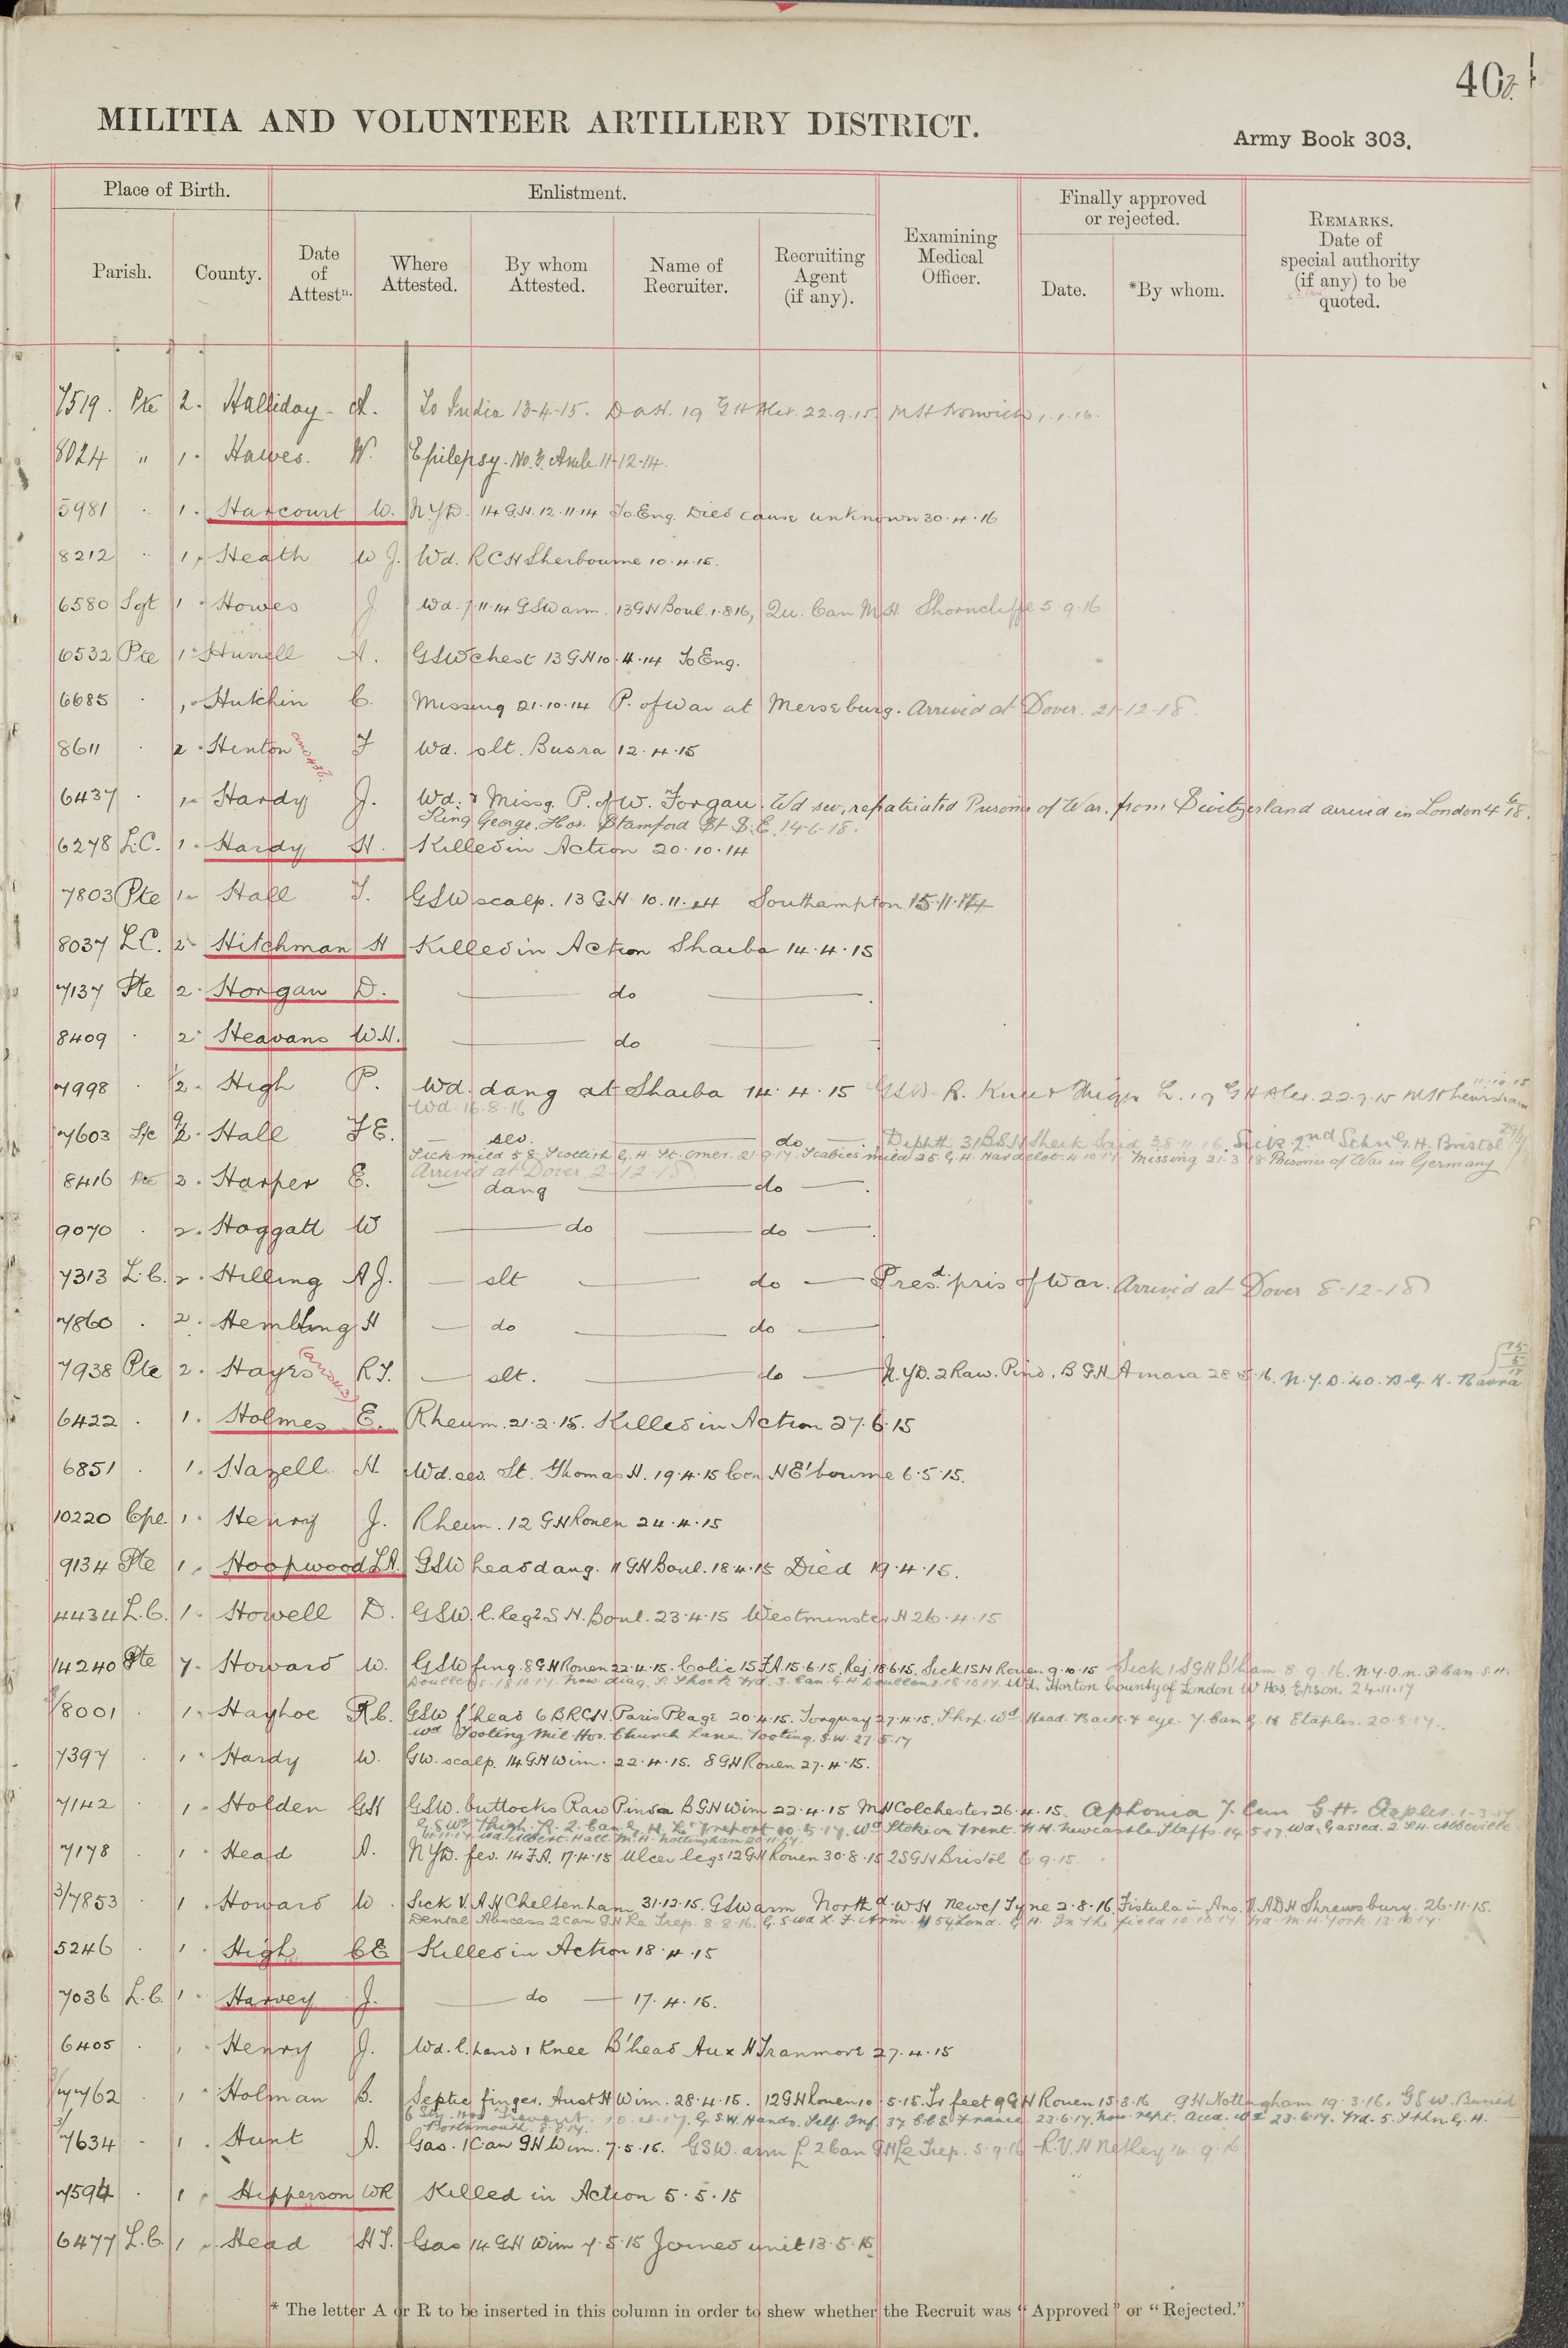 40
MILITIA AND VOLUNTEER ARTILLERY DISTRICT.
Army Book 303.
Place of Birth. Enlistment. Examining Medical Officer. Finally approved or rejected. REMARKS. Date of special authority (if any) to be quoted.
Parish. County. Date of Attestn. Where Attested. By whom Attested. Name of Recruiter. Recruiting Agent (if any). Date. *By whom.
7519. Pte 2. Halliday A. To India 13-4-15. DAH. 19 GH Alex. 22.9.15. MH Norwich 1.1.16.
8024 " 1. Hawes. W. Epilepsy. No. 3. Amb 11-12-14.
5981 " 1. Harcourt W. N.Y.D. 14 G.H. 12.11.14 To Eng. Died cause unknown 30.4.16
8212 " 1. Heath W J. Wd. RCH Sherbourne 10.4.15.
6580 Sgt 1. Howes J Wd. 7.11.14 GSW arm. 13 GH Boul. 1.8.16, Qu. Can M.H. Shorncliffe 5.9.16
6532 Pte 1. Hurrell A. GSW chest 13 GH 10.11.14 To Eng.
6685 . 1. Hutchin C. Missing 21.10.14 P. of War at Merseburg. Arrived at Dover. 21-12-18.
8611 . 2. Hinton F Wd. slt. Busra 12.4.15
6437 . 1. Hardy J. Wd. & Missg. P. of W. Torgau. Wd sev, repatriated Prisoner of War, from Switzerland arrived in London 4/6/18.
King George. Hos. Stamford St S.E. 14-6-18.
6278 L.C. 1. Hardy H. Killed in Action 20.10.14
7803 Pte 1. Hall T. GSW scalp. 13 GH 10.11.14 Southampton 15.11.14
8037 L.C. 2. Hitchman H Killed in Action Shaiba 14.4.15
7137 Pte 2. Horgan D. — do —
8409 . 2. Heavans W.H. — do —
7998 . 1/2. High P. Wd. dang at Shaiba 14.4.15 GSW R. Knee & Thigh L. 19 GH Alex. 22.9.15 MH Lewisham 11.10.15
Wd. 16.8.16
7603 L/c 2. Hall F E. — sev. — do — Diphth 31 BSH Sheik Said 28.11.16. Sick. 2nd Sthn G.H. Bristol
Sick mild 58 Scottish G.H. St. Omer. 21.9.17. Scabies mild 25 G.H. Hardelot 4.10.17. Missing 21.3.18 Prisoner of War in Germany
Arrived at Dover 2-12-18
8416 Pte 2. Harper E. — dang — do —
9070 . 2. Haggatt W — do — do —
7313 L.C. 2. Hilling A J. — slt — do — Presd. pris of War. Arrived at Dover 8-12-18
7860 . 2. Hembling H — do — do —
7938 Pte 2. Hayes R T. — slt. — do — N.Y.D. 2 Raw. Pind. B G H Amara 28.5.16. N.Y.D. 40. B.G.H. Basra 15/5/17
6422 . 1. Holmes E. Rheum. 21.2.15. Killed in Action 27.6.15
6851 . 1. Hazell H Wd. sev. St. Thomas H. 19.4.15 Con H E'bourne 6.5.15.
10220 Cpl. 1. Henry J. Rheum. 12 GH Rouen 24.4.15
9134 Pte 1. Hoopwood L A. GSW head dang. 11 GH Boul. 18.4.15 Died 19.4.15.
4434 L.C. 1. Howell D. GSW. l. leg 2 S H. Boul. 23.4.15 Westminster H 26.4.15
14240 Pte 7. Howard W. GSW fing. 8 GH Rouen 22.4.15. Colic 15 F.A. 15.6.15. Rej. 18.6.15. Sick 1 SH Rouen. 9.10.15 Sick 1 S GH B'ham 8.9.16. N.Y.D.n. 3 Can. S.H.
Doullens. 18.10.17. Now diag. S. Shock Wd. 3. Can. G.H. Doullens. 18.10.17. Wd. Horton County of London W Hos. Epsom. 24.11.17
3/8001 . 1. Hayhoe R.C. GSW f'head 6 BRCH. Paris Plage 20.4.15. Torquay 27.4.15. Shrp. Wd Head. Back. & eye. 7 Can G. H Etaples. 20.5.17.
Wd Tooting Mil. Hos. Church Lane. Tooting. S.W. 27.5.17
7397 . 1. Hardy W. GW. scalp. 14 GH Wim. 22.4.15. 8 GH Rouen 27.4.15.
7142 . 1. Holden G H GSW. buttocks Raw Pinda B G H Wim 22.4.15 MH Colchester 26.4.15. Aphonia 7. Can G.H. Etaples. 1-3-17
G.S.Wd Thigh. R. 2. Can. G. H. Le Treport 10.5.17. Wd Stoke on Trent. W.H. Newcastle Staffs. 14.5.17. Wd. Gassed. 2 S.H. Abbeville
7178 . 1. Head A. NYD. fev. 14 F.A. 17.4.15 Ulcer legs 12 GH Rouen 30.8.15 2 S G H Bristol 6.9.15.
3/7853 . 1. Howard W. Sick V.A.H Cheltenham 31.12.15. GSW arm North'd. WH Newc/Tyne 2.8.16. Fistula in Ano. V.A.D.H Shrewsbury. 26.11.15.
Dental Abscess 2 Can G.H Le Trep. 8.8.16. G.S.Wd L. F. Arm. 54 Lond. G.H. In the field 10.10.17. Wd. M.H. York. 13.10.17.
5246 . 1. High C E Killed in Action 18.4.15
7036 L.C. 1. Harvey J. — do — 17.4.15.
6405 . 1. Henry J. Wd. l. hand & Knee B'head Aux H Tranmore 27.4.15
3/7762 . 1. Holman B. Septic finger. Aust H Wim. 28.4.15. 12 GH Rouen 10.5.15. Tr feet 9 GH Rouen 15.3.16 GH. Nottingham 19.3.16. GSW. Buried
G.S.W. Hands. Self. Inf. 37 C.C.S. France 23.6.17. Now rept. Accd. Wd 23.6.17. Wd. 5. Sthn G.H.
Portsmouth. 8.8.17.
3/7634 . 1. Hunt A. Gas. 1 Can GH Wim. 7.5.15. GSW. arm L 2 Can GH Le Trep. 5.9.16 R.V.H Netley 14.9.16
7594 . 1. Hipperson W R Killed in Action 5.5.15
6477 L.C. 1. Head H T. Gas 14 GH Wim 7.5.15 Joined unit 13.5.15
* The letter A or R to be inserted in this column in order to shew whether the Recruit was "Approved" or "Rejected."